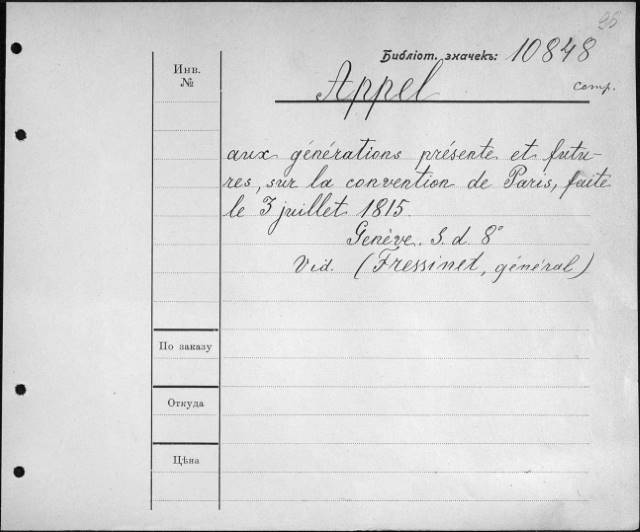 26
Библіот. значекъ: 10848
Инв.
№
Appel
comp.
aux générations présente et futu-
res, sur la convention de Paris, faite
le 3 juillet 1815.
Genève. S. d 8°
Vid. (Fressinet, général)
По заказу
Откуда
Цѣна